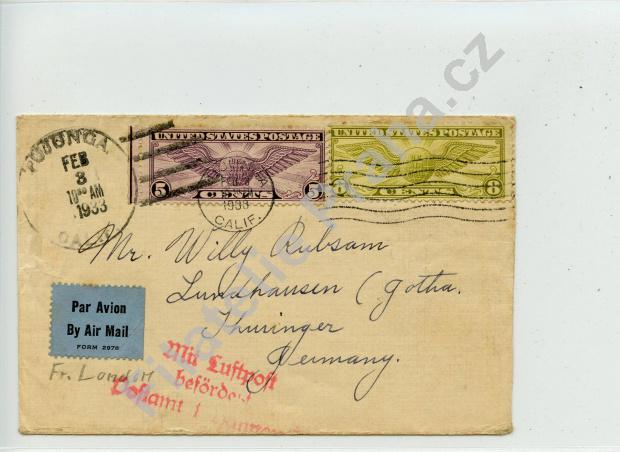 TUJUNGA
FEB
3
10 30 AM
1933
CALIF.
UNITED STATES POSTAGE
5 5
CENTS
UNITED STATES POSTAGE
8 8
CENTS
1933
CALIF.
Mr. Willy Rubsam
Lundhausen (Gotha.
Thuringer
Germany.
Par Avion
By Air Mail
FORM 2978
Fr. London
Mit Luftpost
befördert
Postamt 1
Filatelie Praha.cz